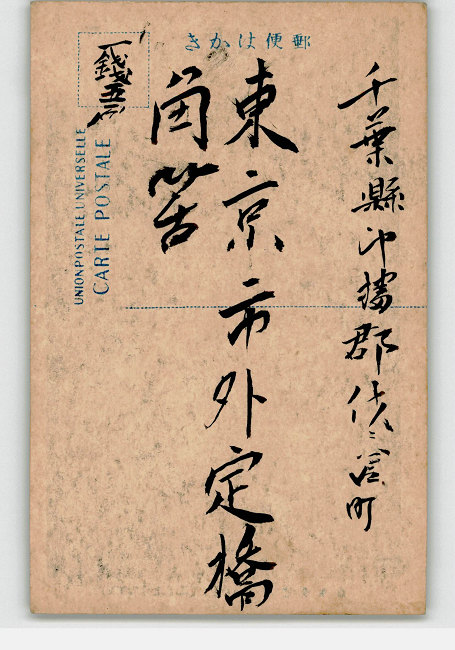 郵便はかき
千葉縣印旛郡佐倉町
東京市外定橋
角筈
一錢五厘
CARTE POSTALE
UNION POSTALE UNIVERSELLE